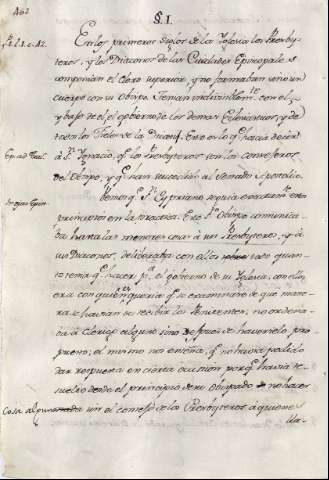 §. I.
En los primeros siglos de la Iglesia los Presby-
teros, y los Diaconos de las Ciudades Episcopales
componian el Clero superior, q.e no formaban sino un
cuerpo con su Obispo. Tenian
y baxo de él el gobierno de los demas Eclesiasticos, y de
todos los Fieles de la Esto es lo q.e hacia decir
á S.n Ignacio, q.e los Presbyteros son los consejeros
del Obispo, y q.e han sucedido al Senado Apostolico.
Vemos q.e S.n Cypriano seguia exactam.te este
principio en la practica. Este S.to Obispo comunica-
ba hasta las menores cosas á sus Presbyteros, y á
sus Diaconos, deliberaba con ellos sobre todo quan-
to tenia q.e hacer p.a el gobierno de su Iglesia, con ellos
era con quien queria q.e se examinase de que mane-
ra se havian de recibir los Penitentes, no ordena-
ba á Clerigo alguno sino despues de haverselo pro-
puesto, el mismo nos enseña, q.e no havia podido
dar respuesta en cierta ocasion porq.e havia re-
suelto desde el principio de su Obispado no hacer
Cosa alguna sin el consejo de los Presbyteros á quienes